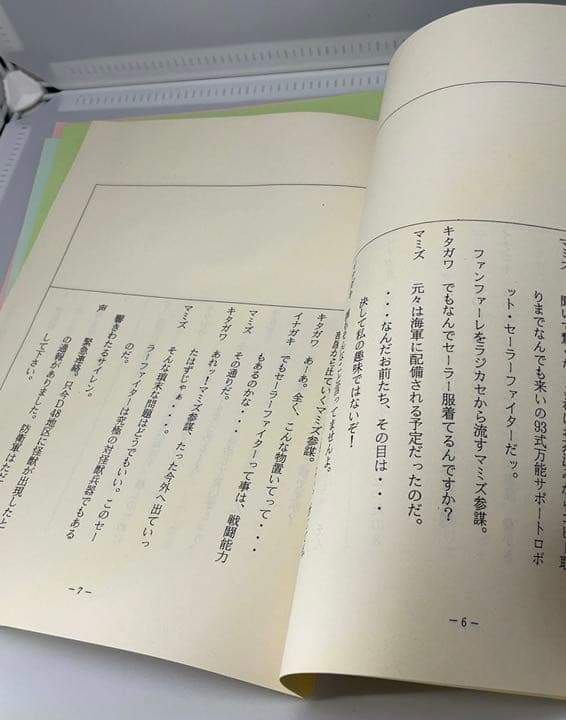 りまでなんでも来いの93式万能サポートロボ
ット・セーラーファイターだッ。
ファンファーレをラジカセから流すマミズ参謀。
キタガワ　でもなんでセーラー服着てるんですか?
マミズ　元々は海軍に配備される予定だったのだ。
・・・なんだお前たち、その目は・・・
決して私の趣味ではないぞ!
－6－
から出ていくマミズ参謀。
キタガワ　あーあ。全く、こんな物置いてって・・・
イナガキ　でもセーラーファイターって事は、戦闘能力
もあるのかな・・・
マミズ　その通りだ。
キタガワ　あれッ!マミズ参謀、たった今外へ出ていっ
たはずじゃぁ・・・。
マミズ　そんな瑣末な問題はどうでもいい。このセー
ラーファイターは究極の対怪獣兵器でもある
のだ。
響きわたるサイレン。
声　緊急連絡。只今D48地区に怪獣が出現したと
の通報がありました。防衛軍はただ
して下さい。
－7－